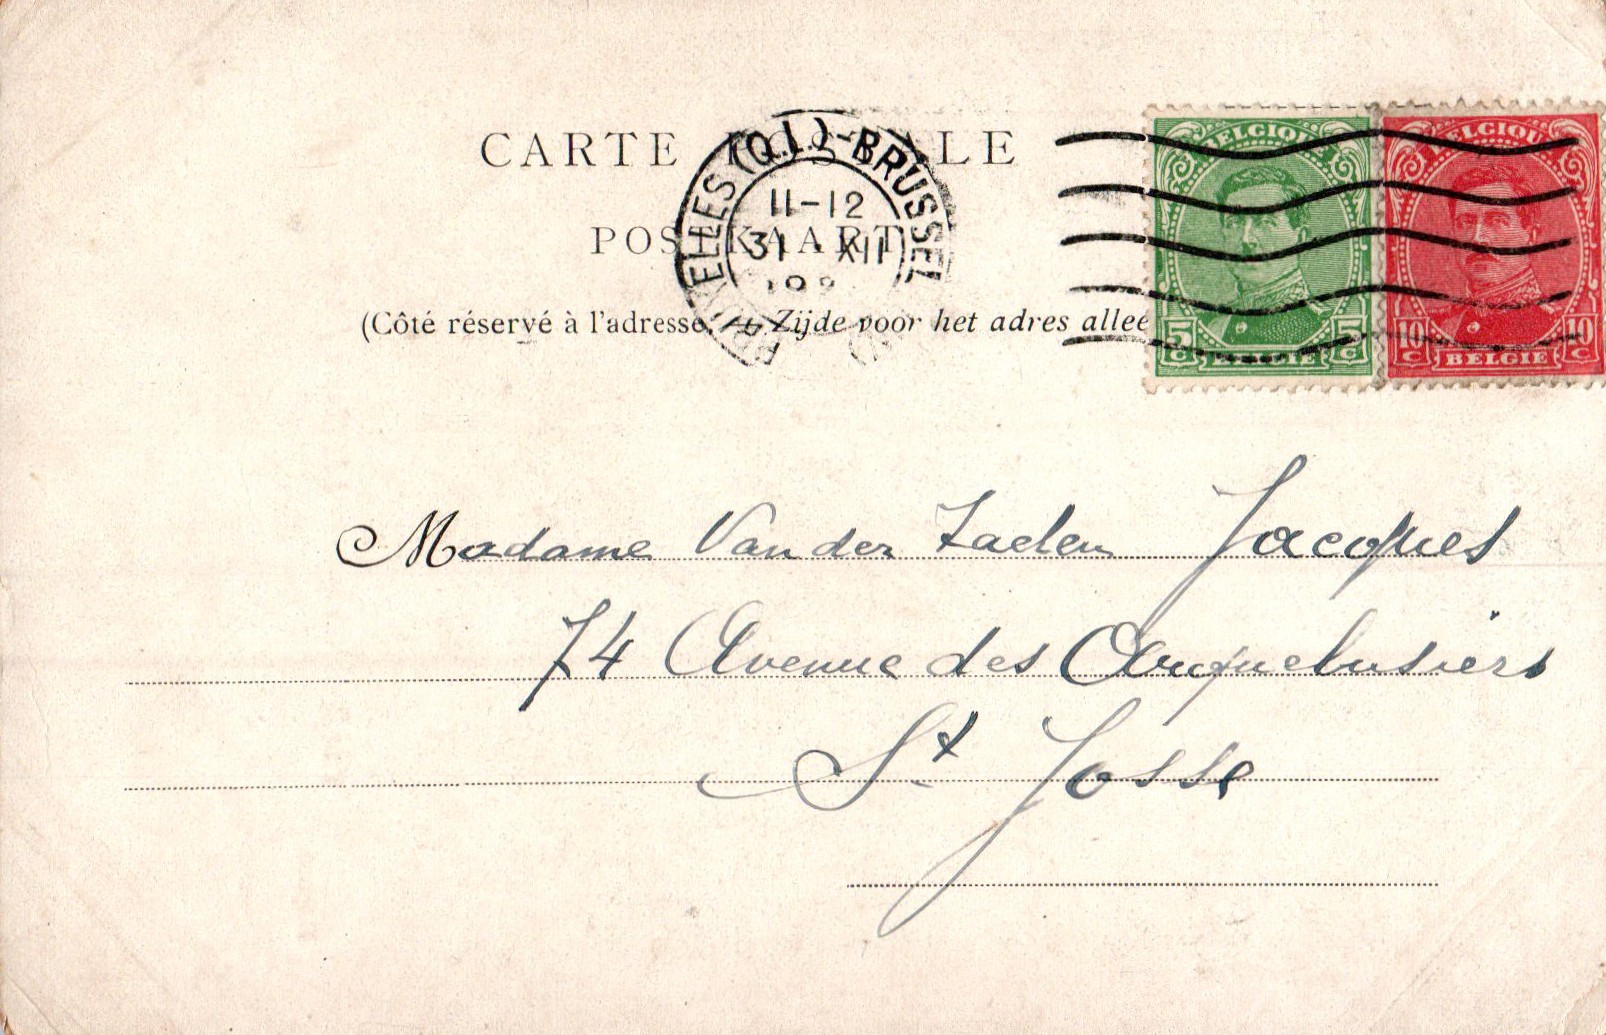 CARTE POSTALE
POSTKAART
(Côté réservé à l'adresse. — Zijde voor het adres allee
BRUXELLES (Q.L.) - BRUSSEL
11-12
31 XII
192
BELGIQUE
5 C 5 C
BELGIE
BELGIQUE
10 C 10 C
BELGIË
Madame Van der Taelen Jacques
74 Avenue des Arquebusiers
St Josse